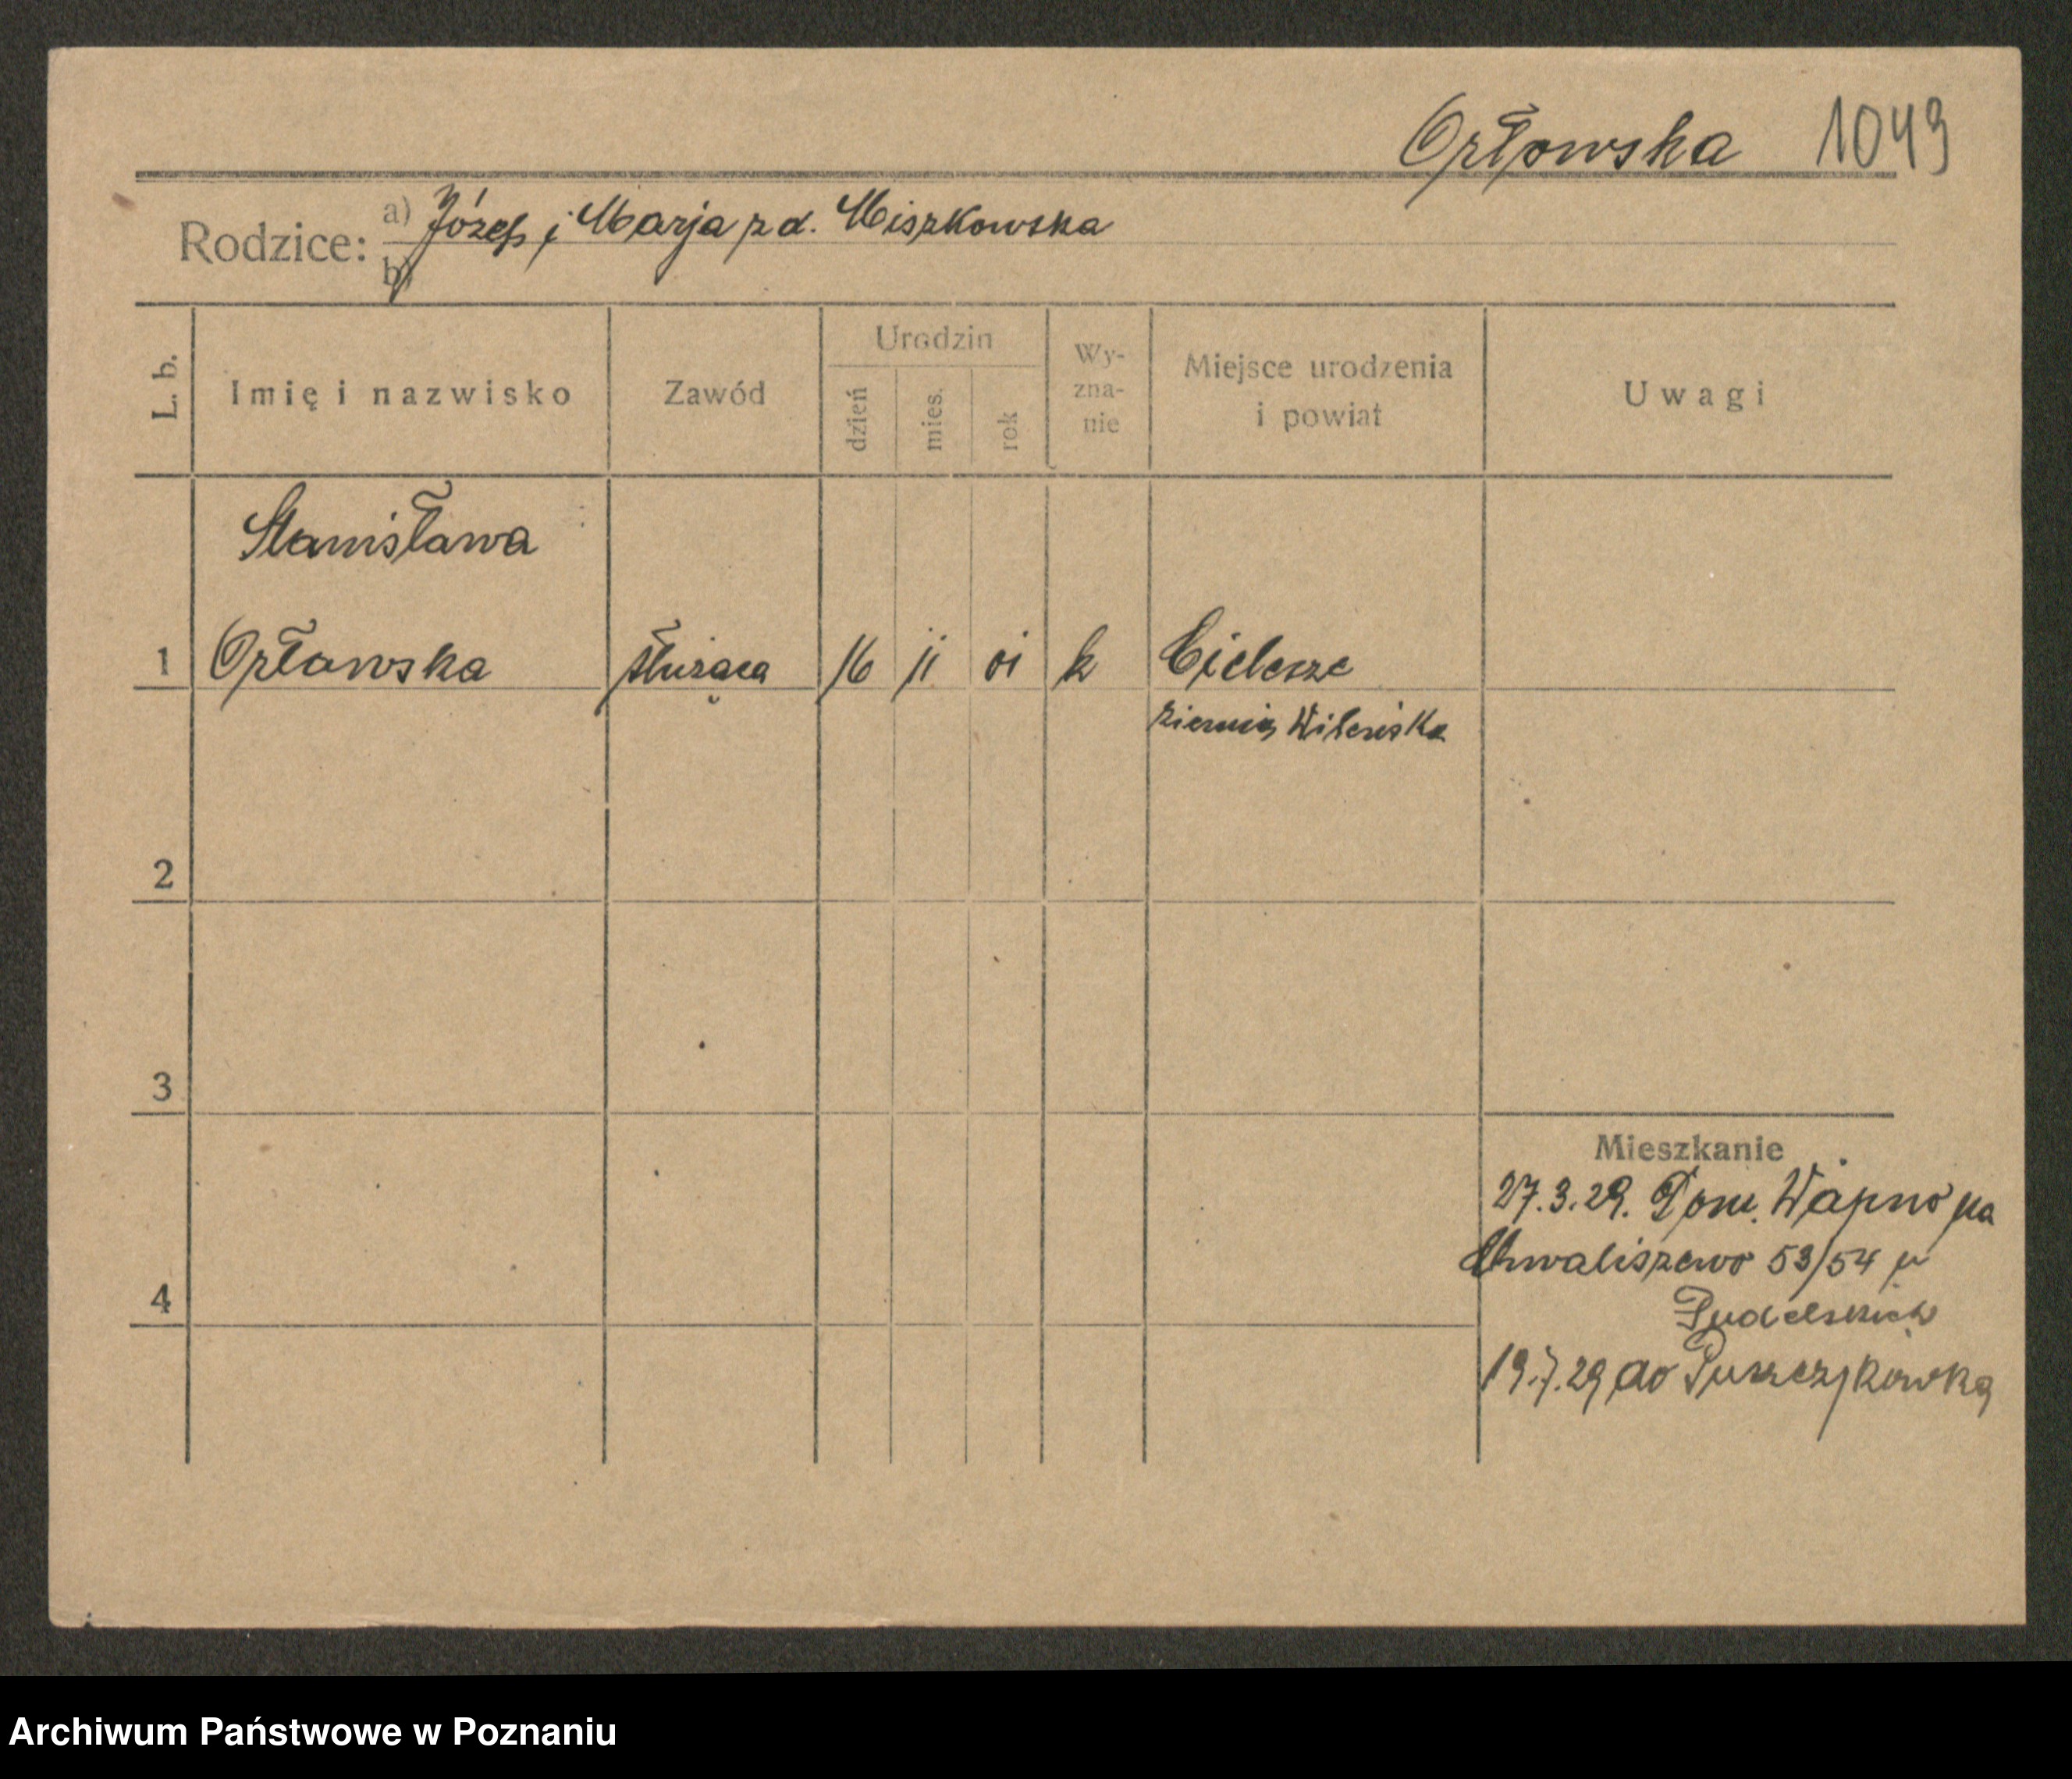 Orłowska 1049
Rodzice: a) Józef i Marja z d. Miszkowska
b)
L. b. Imię i nazwisko Zawód Urodzin dzień mies. rok Wy-zna-nie Miejsce urodzenia i powiat Uwagi
Stanisława
1 Orłowska służąca 16 ii oi k Cielesze
ziemia Wileńska
2
3
Mieszkanie
27.3.29. Dom. Wapno na
Chwaliszewo 53/54 u
4
19.7.29 do Puszczykówka
Archiwum Państwowe w Poznaniu